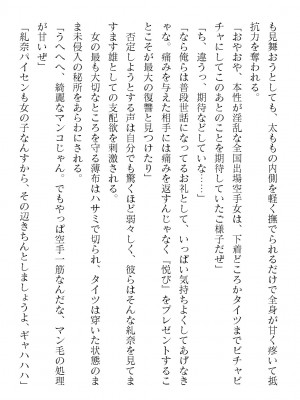 も見舞おうとしても、太ももの内側を軽く撫でられるだけで全身が甘く疼いて抵
抗力を奪われる。
「おやおや、本性が淫乱な全国出場空手女は、下着どころかタイツまでビチャビ
チャにしてこのあとのことを期待していたご様子だぜ」
「ち、違うっ、期待などしていな……」
「なら俺らは普段世話になってるお礼として、いっぱい気持ちよくしてあげなき
ゃな。痛みを与えた相手には痛みを返すんじゃなく『悦び』をプレゼントするこ
とこそが最大の復讐と見つけたり」
否定しようとする声は自分でも驚くほど弱々しく、彼らはそんな糺奈を見てま
すます雄としての支配欲を刺激される。
女の最も大切なところを守る薄布はハサミで切られ、タイツは穿いた状態のま
ま未侵入の秘所をあらわにされる。
「うへへへ、綺麗なマンコじゃん。でもやっぱ空手一筋なんだな、マン毛の処理
が甘いぜ」
「糺奈パイセンも女の子なんすから、その辺きちんとしましょうよ、ギャハハハ」